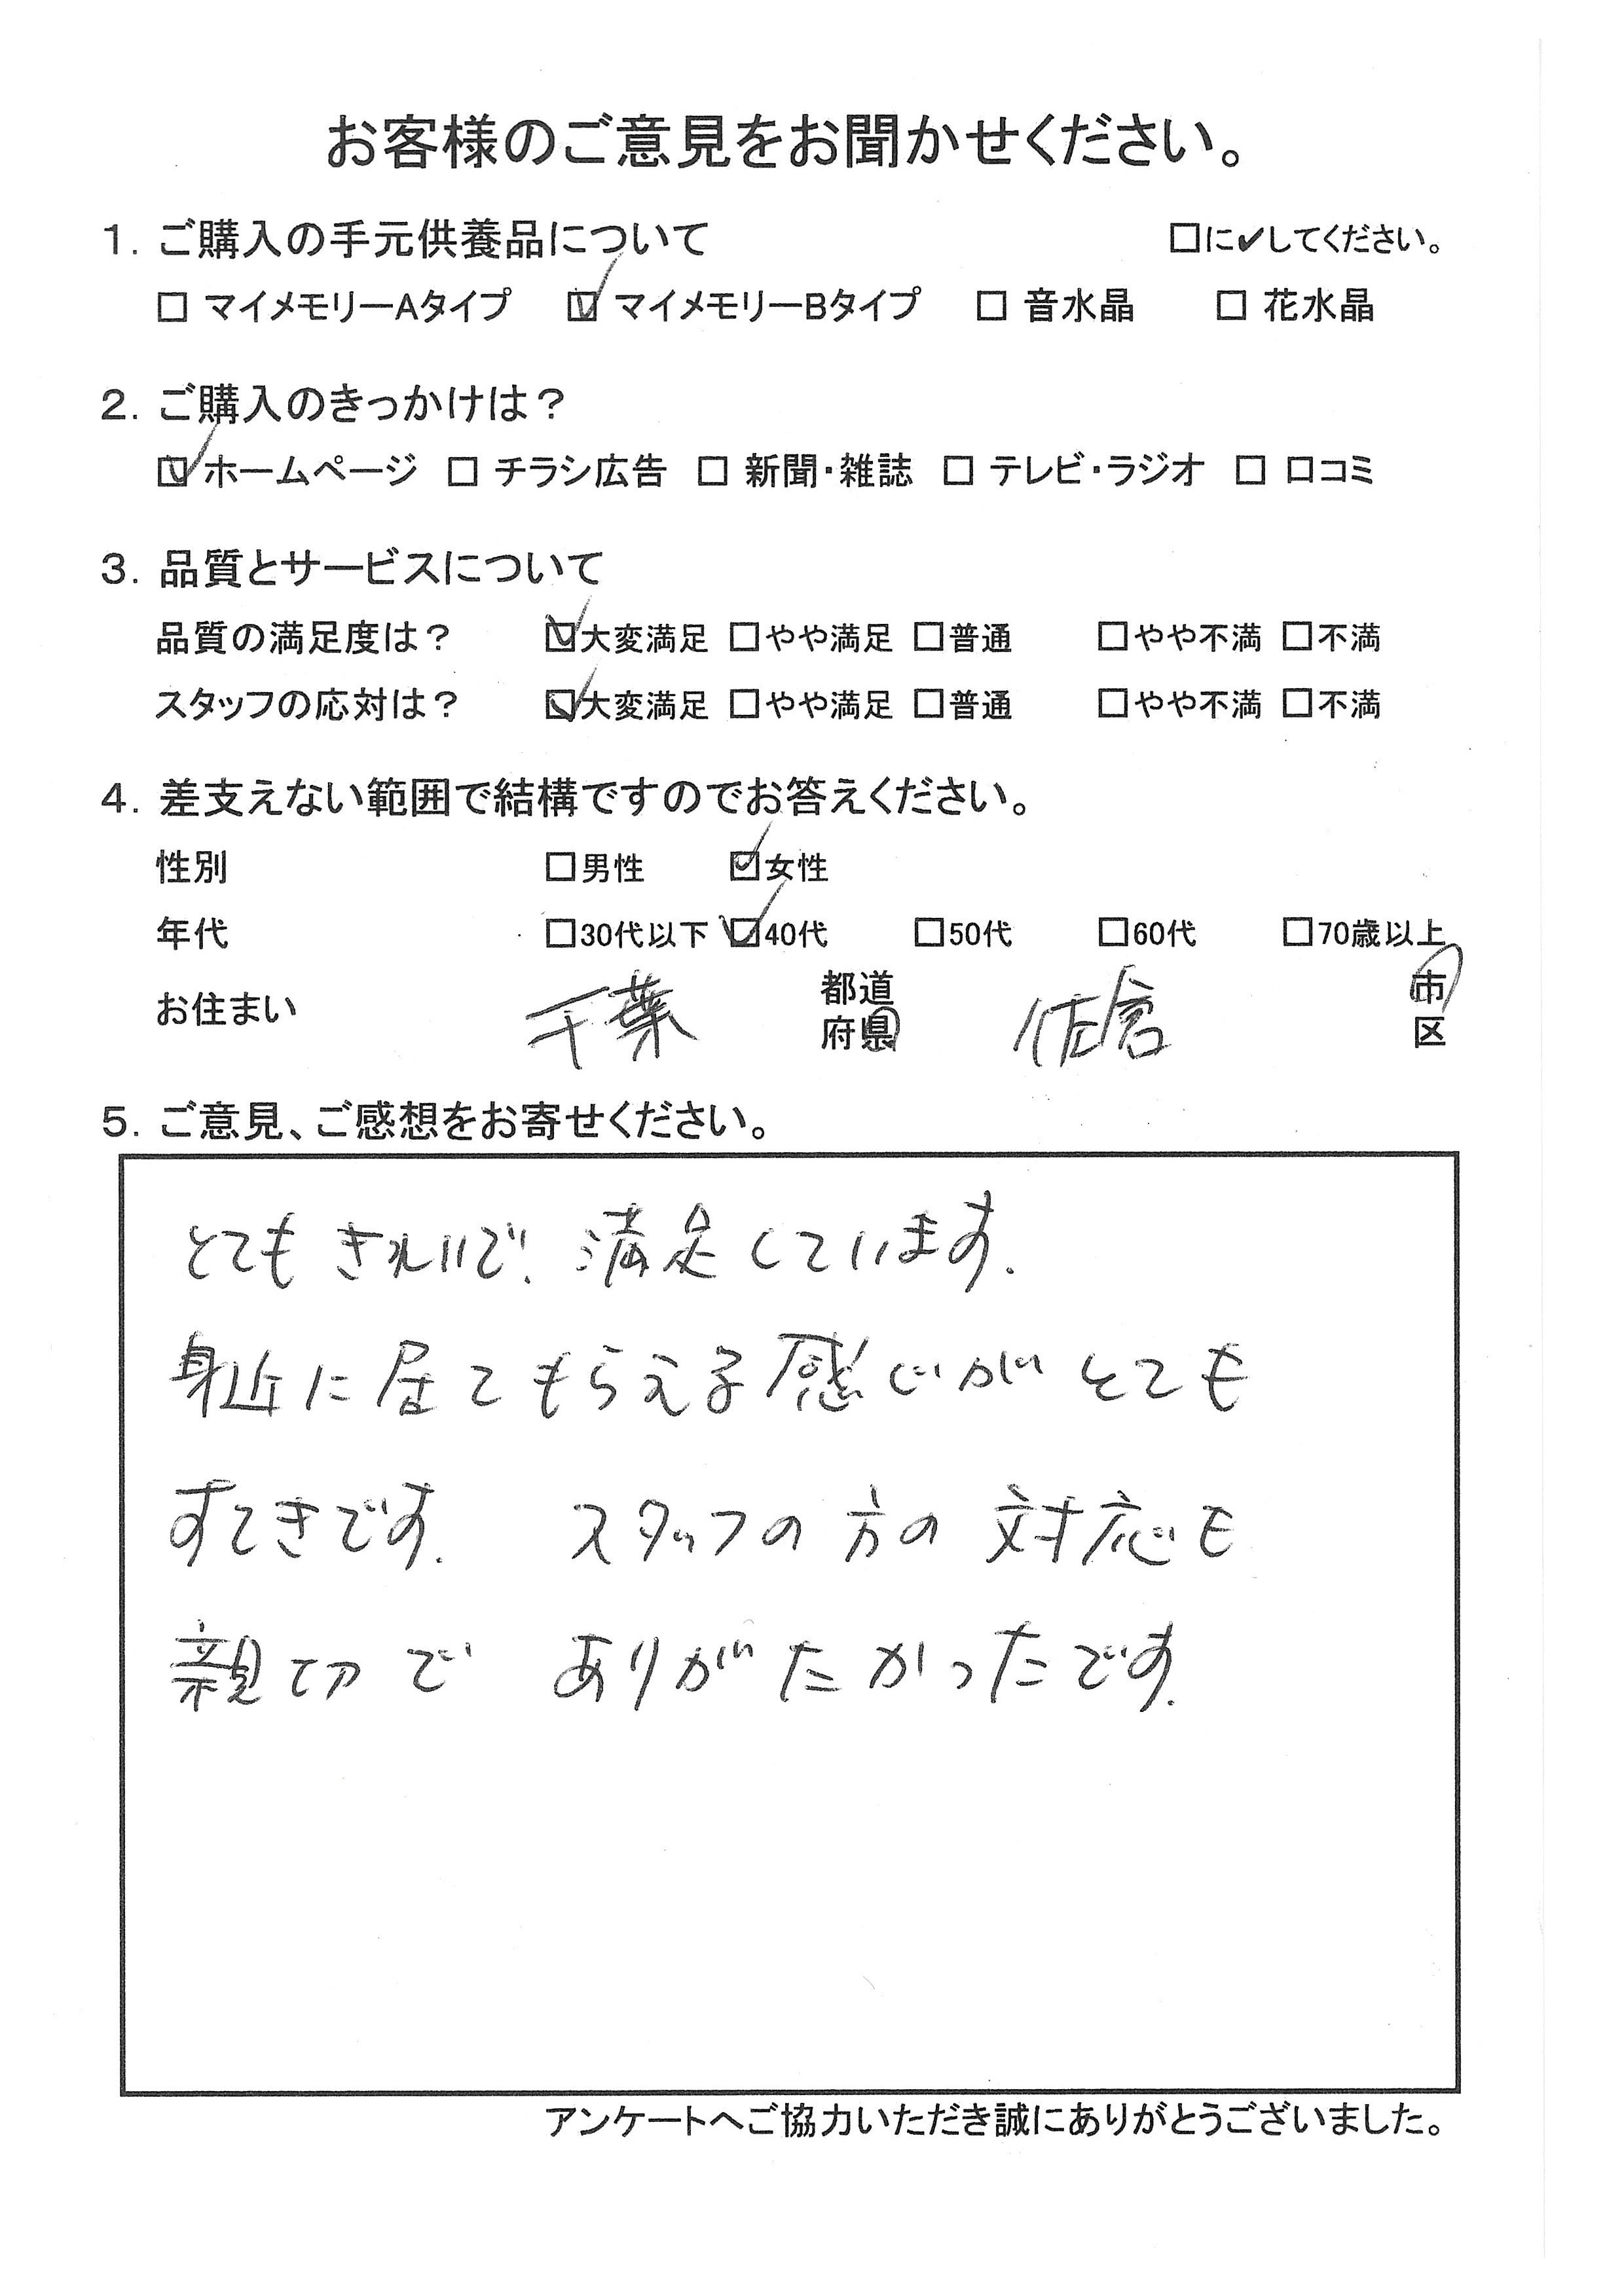 お客様のご意見をお聞かせください。
1. ご購入の手元供養品について □に✔してください。
□ マイメモリーAタイプ ☑ マイメモリーBタイプ □ 音水晶 □ 花水晶
2. ご購入のきっかけは？
☑ ホームページ □ チラシ広告 □ 新聞・雑誌 □ テレビ・ラジオ □ 口コミ
3. 品質とサービスについて
品質の満足度は？ ☑大変満足 □やや満足 □普通 □やや不満 □不満
スタッフの応対は？ ☑大変満足 □やや満足 □普通 □やや不満 □不満
4. 差支えない範囲で結構ですのでお答えください。
性別 □男性 ☑女性
年代 □30代以下 ☑40代 □50代 □60代 □70歳以上
お住まい 千葉 都道府県 佐倉 市区
5. ご意見、ご感想をお寄せください。
とてもきれいで、満足しています。
身近に居てもらえる感じがとても
すてきです。 スタッフの方の対応も
親切で ありがたかったです。
アンケートへご協力いただき誠にありがとうございました。